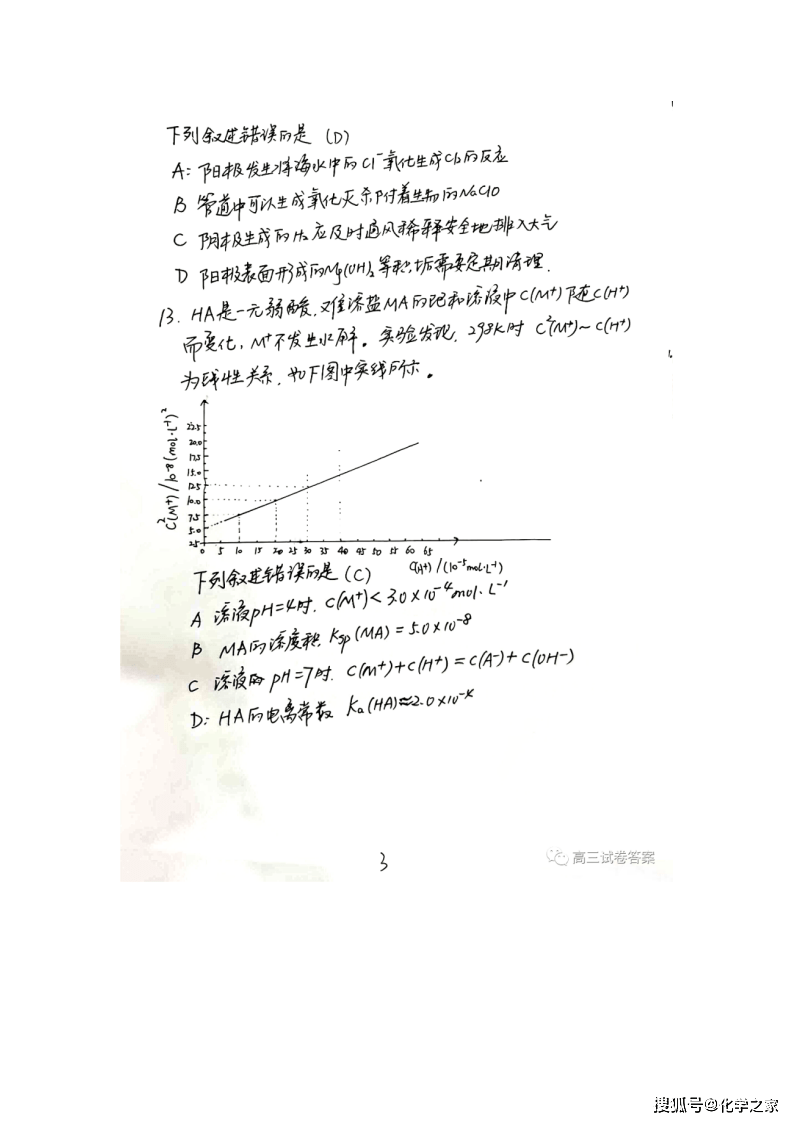 下列叙述错误的是 (D)
A: 阳极发生将海水中的Cl⁻氧化生成Cl₂的反应
B 管道中可以生成氧化灭杀附着生物的NaClO
C 阴极生成的H₂应及时通风稀释安全地排入大气
D 阳极表面形成的Mg(OH)₂等积垢需要定期清理.
13. HA是一元弱酸,难溶盐MA的饱和溶液中C(M⁺)随C(H⁺)
而变化,M⁺不发生水解。实验发现, 298K时 C²(M⁺)~C(H⁺)
为线性关系,如下图中实线所示。
C²(M⁺)/10⁻⁸(mol·L⁻¹)²
22.5
20.0
17.5
15.0
12.5
10.0
7.5
5.0
2.5
0 5 10 15 20 25 30 35 40 45 50 55 60 65
C(H⁺)/(10⁻⁵mol·L⁻¹)
下列叙述错误的是 (C)
A 溶液pH=4时. C(M⁺)<3.0×10⁻⁴mol·L⁻¹
B MA的溶度积 Ksp(MA)=5.0×10⁻⁸
C 溶液的pH=7时. C(M⁺)+C(H⁺)=C(A⁻)+C(OH⁻)
D: HA的电离常数 Ka(HA)≈2.0×10⁻⁴
3
高三试卷答案
搜狐号@化学之家